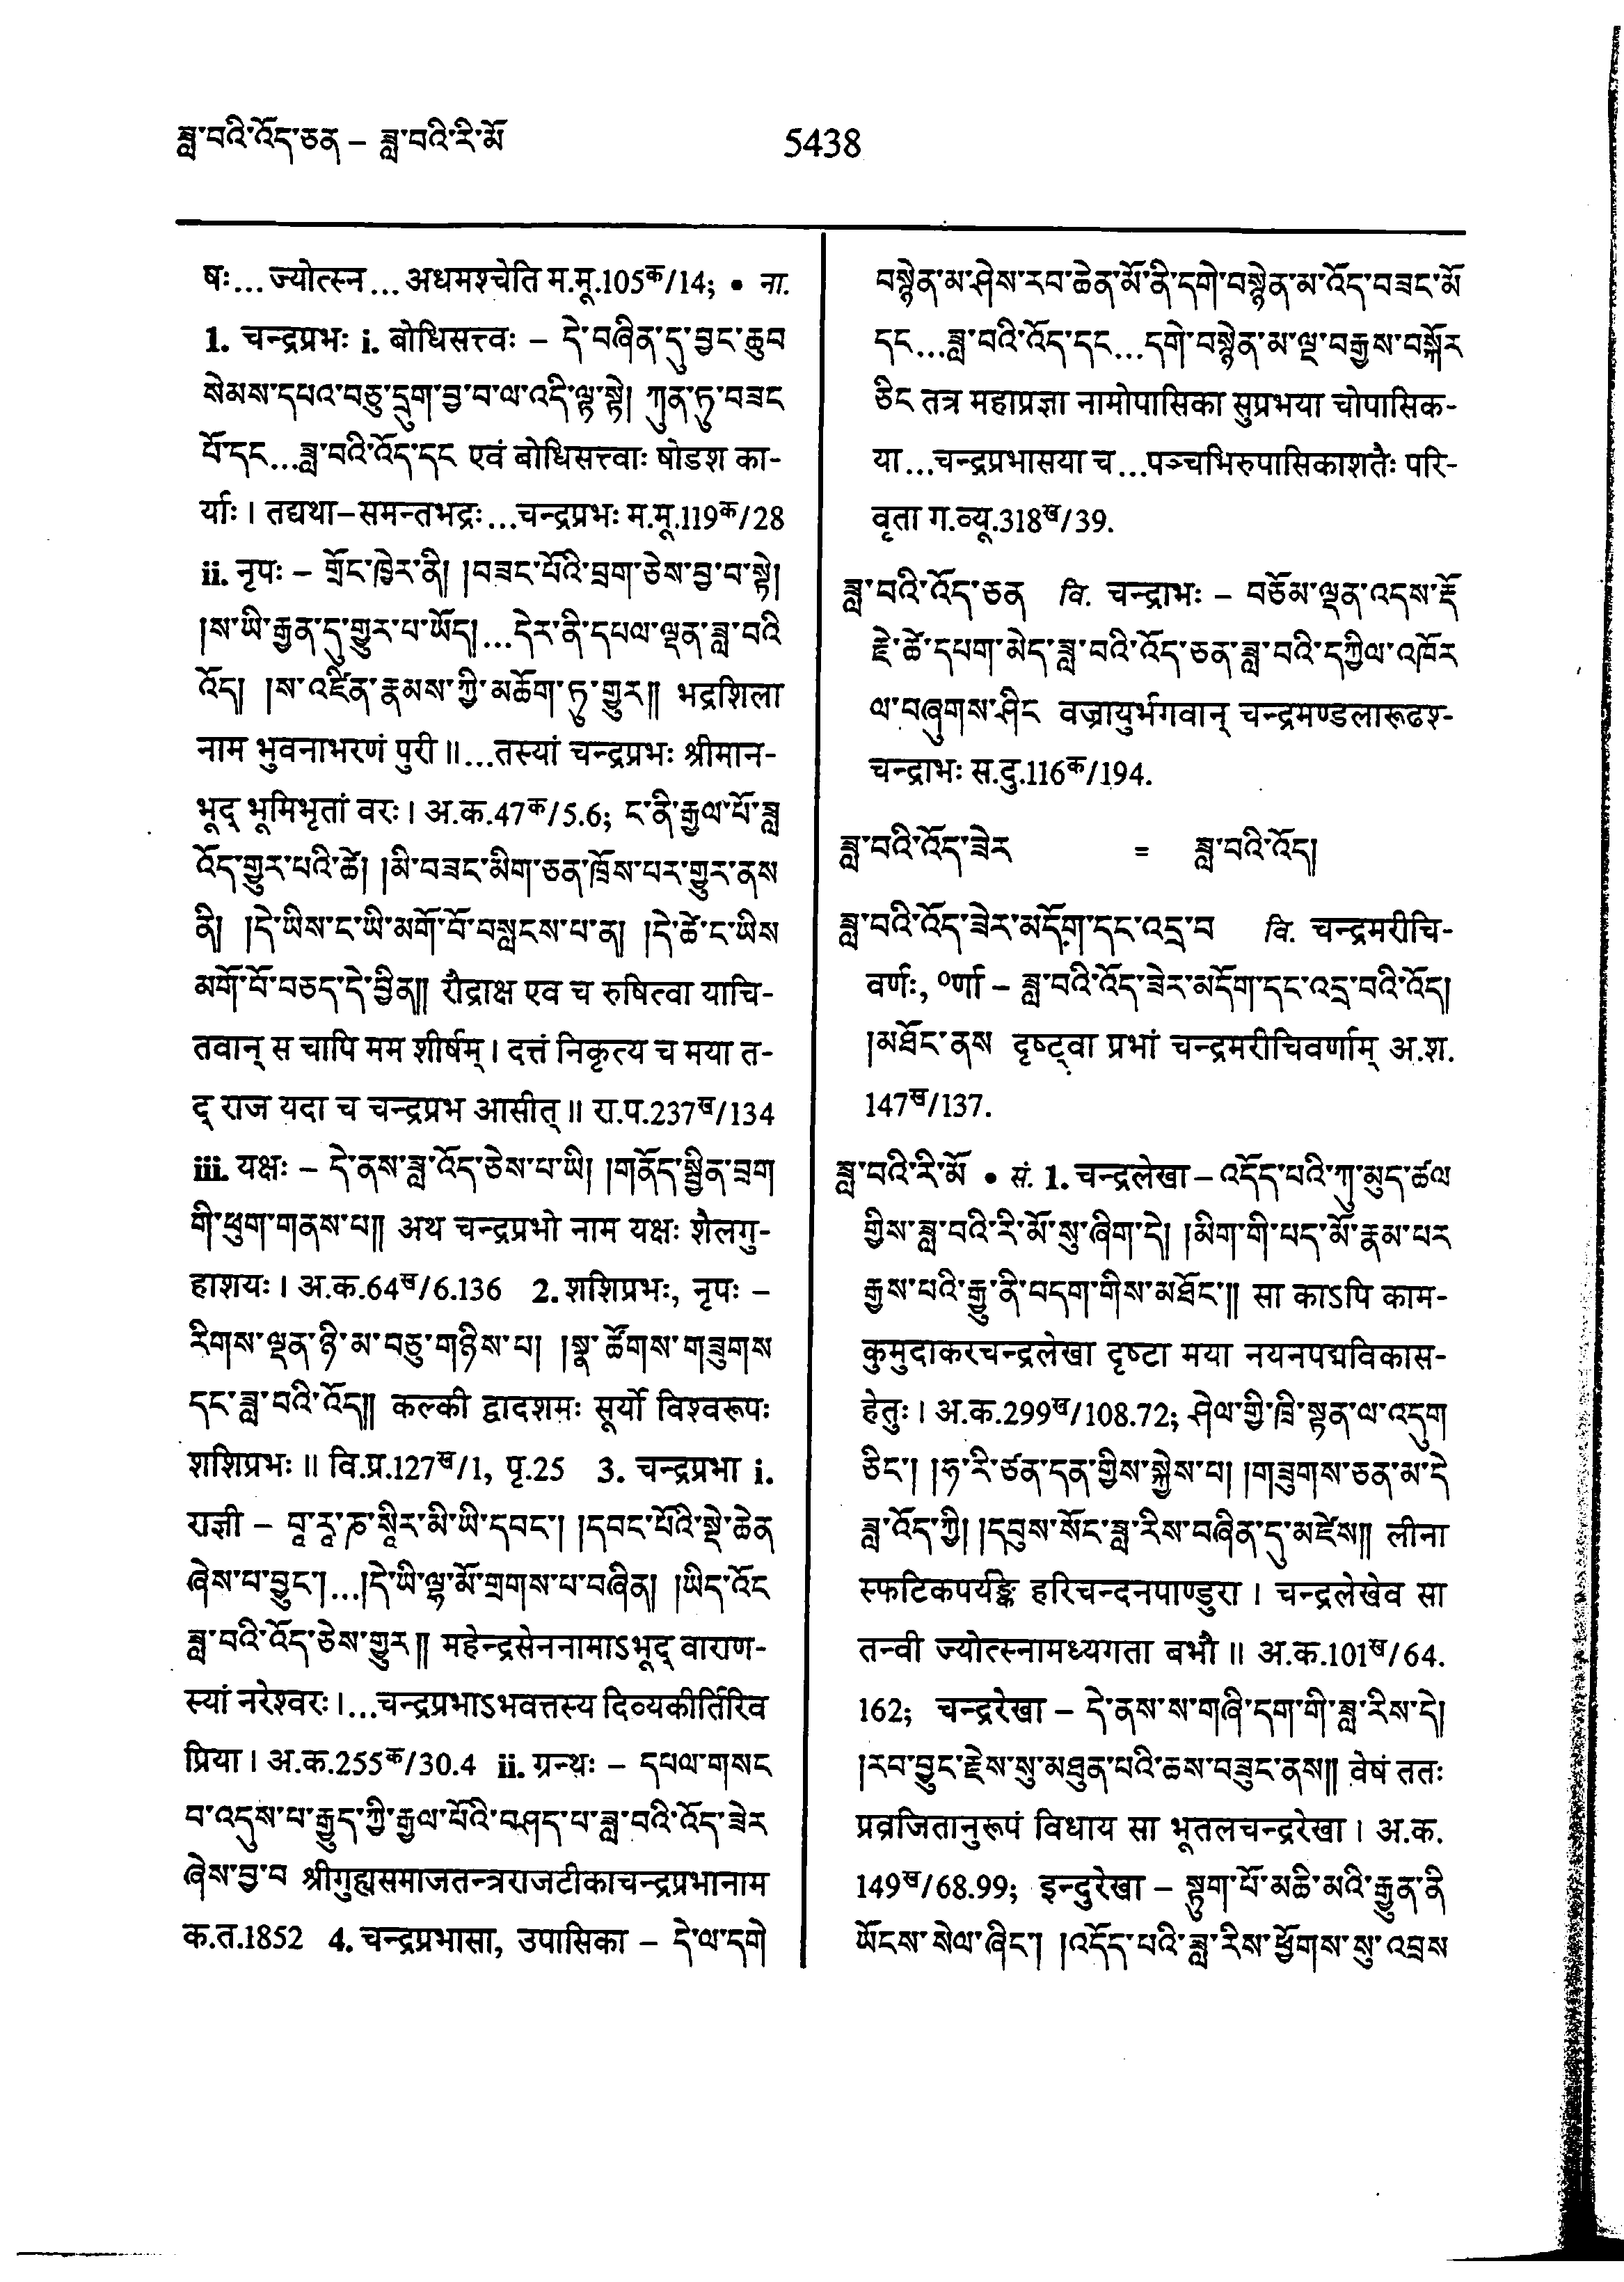 ཟླ་བའི་འོད་ཅན – ཟླ་བའི་རི་མོ
5438
षः...ज्योत्स्न...अधमश्चेति म.मू.105क/14; • ना.
1. चन्द्रप्रभः i. बोधिसत्त्वः – དེ་བཞིན་དུ་བྱང་ཆུབ
སེམས་དཔའ་བཅུ་དྲུག་བྱ་བ་ལ་འདི་ལྟ་སྟེ། ཀུན་ཏུ་བཟང
པོ་དང...ཟླ་བའི་འོད་དང एवं बोधिसत्त्वाः षोडश का-
र्याः । तद्यथा–समन्तभद्रः...चन्द्रप्रभः म.मू.119क/28
ii. नृपः – གྲོང་ཁྱེར་ནི། །བཟང་པོའི་བྲག་ཅེས་བྱ་བ་སྟེ།
།ས་ཡི་རྒྱན་དུ་གྱུར་པ་ཡོད།...དེར་ནི་དཔལ་ལྡན་ཟླ་བའི
འོད། །ས་འཛིན་རྣམས་ཀྱི་མཆོག་ཏུ་གྱུར།། भद्रशिला
नाम भुवनाभरणं पुरी ॥...तस्यां चन्द्रप्रभः श्रीमान-
भूद् भूमिभृतां वरः । अ.क.47क/5.6; ང་ནི་རྒྱལ་པོ་ཟླ
འོད་གྱུར་པའི་ཚེ། །མི་བཟང་མིག་ཅན་ཁྲོས་པར་གྱུར་ནས
ནི། །དེ་ཡིས་ང་ཡི་མགོ་བོ་བསླངས་པ་ན། །དེ་ཚེ་ང་ཡིས
མགོ་བོ་བཅད་དེ་བྱིན།། रौद्राक्ष एव च रुषित्वा याचि-
तवान् स चापि मम शीर्षम् । दत्तं निकृत्य च मया त-
द् राज यदा च चन्द्रप्रभ आसीत् ॥ रा.प.237ख/134
iii. यक्षः – དེ་ནས་ཟླ་འོད་ཅེས་པ་ཡི། །གནོད་སྦྱིན་བྲག
གི་ཕུག་གནས་པ།། अथ चन्द्रप्रभो नाम यक्षः शैलगु-
हाशयः । अ.क.64ख/6.136 2. शशिप्रभः, नृपः –
རིགས་ལྡན་ཉི་མ་བཅུ་གཉིས་པ། །སྣ་ཚོགས་གཟུགས
དང་ཟླ་བའི་འོད།། कल्की द्वादशमः सूर्यो विश्वरूपः
शशिप्रभः ॥ वि.प्र.127ख/1, पृ.25 3. चन्द्रप्रभा i.
राज्ञी – བཱ་རཱ་ཎ་སཱིར་མི་ཡི་དབང་། །དབང་པོའི་སྡེ་ཆེན
ཞེས་པ་བྱུང་།...།དེ་ཡི་ལྷ་མོ་གྲགས་པ་བཞིན། །ཡིད་འོང
ཟླ་བའི་འོད་ཅེས་གྱུར།། महेन्द्रसेननामाऽभूद् वाराण-
स्यां नरेश्वरः ।...चन्द्रप्रभाऽभवत्तस्य दिव्यकीर्तिरिव
प्रिया । अ.क.255क/30.4 ii. ग्रन्थः – དཔལ་གསང
བ་འདུས་པ་རྒྱུད་ཀྱི་རྒྱལ་པོའི་བཤད་པ་ཟླ་བའི་འོད་ཟེར
ཞེས་བྱ་བ श्रीगुह्यसमाजतन्त्रराजटीकाचन्द्रप्रभानाम
क.त.1852 4. चन्द्रप्रभासा, उपासिका – དེ་ལ་དགེ
བསྙེན་མ་ཤེས་རབ་ཆེན་མོ་ནི་དགེ་བསྙེན་མ་འོད་བཟང་མོ
དང...ཟླ་བའི་འོད་དང...དགེ་བསྙེན་མ་ལྔ་བརྒྱས་བསྐོར
ཅིང तत्र महाप्रज्ञा नामोपासिका सुप्रभया चोपासिक-
या...चन्द्रप्रभासया च...पञ्चभिरुपासिकाशतैः परि-
वृता ग.व्यू.318ख/39.
ཟླ་བའི་འོད་ཅན वि. चन्द्राभः – བཅོམ་ལྡན་འདས་རྡོ
རྗེ་ཚེ་དཔག་མེད་ཟླ་བའི་འོད་ཅན་ཟླ་བའི་དཀྱིལ་འཁོར
ལ་བཞུགས་ཤིང वज्रायुर्भगवान् चन्द्रमण्डलारूढश्-
चन्द्राभः स.दु.116क/194.
ཟླ་བའི་འོད་ཟེར = ཟླ་བའི་འོད།
ཟླ་བའི་འོད་ཟེར་མདོག་དང་འདྲ་བ वि. चन्द्रमरीचि-
वर्णः, ०र्णा – ཟླ་བའི་འོད་ཟེར་མདོག་དང་འདྲ་བའི་འོད།
།མཐོང་ནས दृष्ट्वा प्रभां चन्द्रमरीचिवर्णाम् अ.श.
147ख/137.
ཟླ་བའི་རི་མོ • सं. 1. चन्द्रलेखा – འདོད་པའི་ཀུ་མུད་ཚལ
གྱིས་ཟླ་བའི་རི་མོ་སུ་ཞིག་དེ། །མིག་གི་པད་མོ་རྣམ་པར
རྒྱས་པའི་རྒྱུ་ནི་བདག་གིས་མཐོང་།། सा काऽपि काम-
कुमुदाकरचन्द्रलेखा दृष्टा मया नयनपद्मविकास-
हेतुः । अ.क.299ख/108.72; ཤེལ་གྱི་ཁྲི་སྟན་ལ་འདུག
ཅིང་། །ཧ་རི་ཙན་དན་གྱིས་སྐྱེས་པ། །གཟུགས་ཅན་མ་དེ
ཟླ་འོད་ཀྱི། །དབུས་སོང་ཟླ་རིས་བཞིན་དུ་མཛེས།། लीना
स्फटिकपर्यङ्के हरिचन्दनपाण्डुरा । चन्द्रलेखेव सा
तन्वी ज्योत्स्नामध्यगता बभौ ॥ अ.क.101ख/64.
162; चन्द्ररेखा – དེ་ནས་ས་གཞི་དག་གི་ཟླ་རིས་དེ།
།རབ་བྱུང་རྗེས་སུ་མཐུན་པའི་ཆས་བཟུང་ནས།། वेषं ततः
प्रव्रजितानुरूपं विधाय सा भूतलचन्द्ररेखा । अ.क.
149ख/68.99; इन्दुरेखा – སྟུག་པོ་མཆི་མའི་རྒྱུན་ནི
ཡོངས་སེལ་ཞིང་། །འདོད་པའི་ཟླ་རིས་ཕྱོགས་སུ་འབྲས